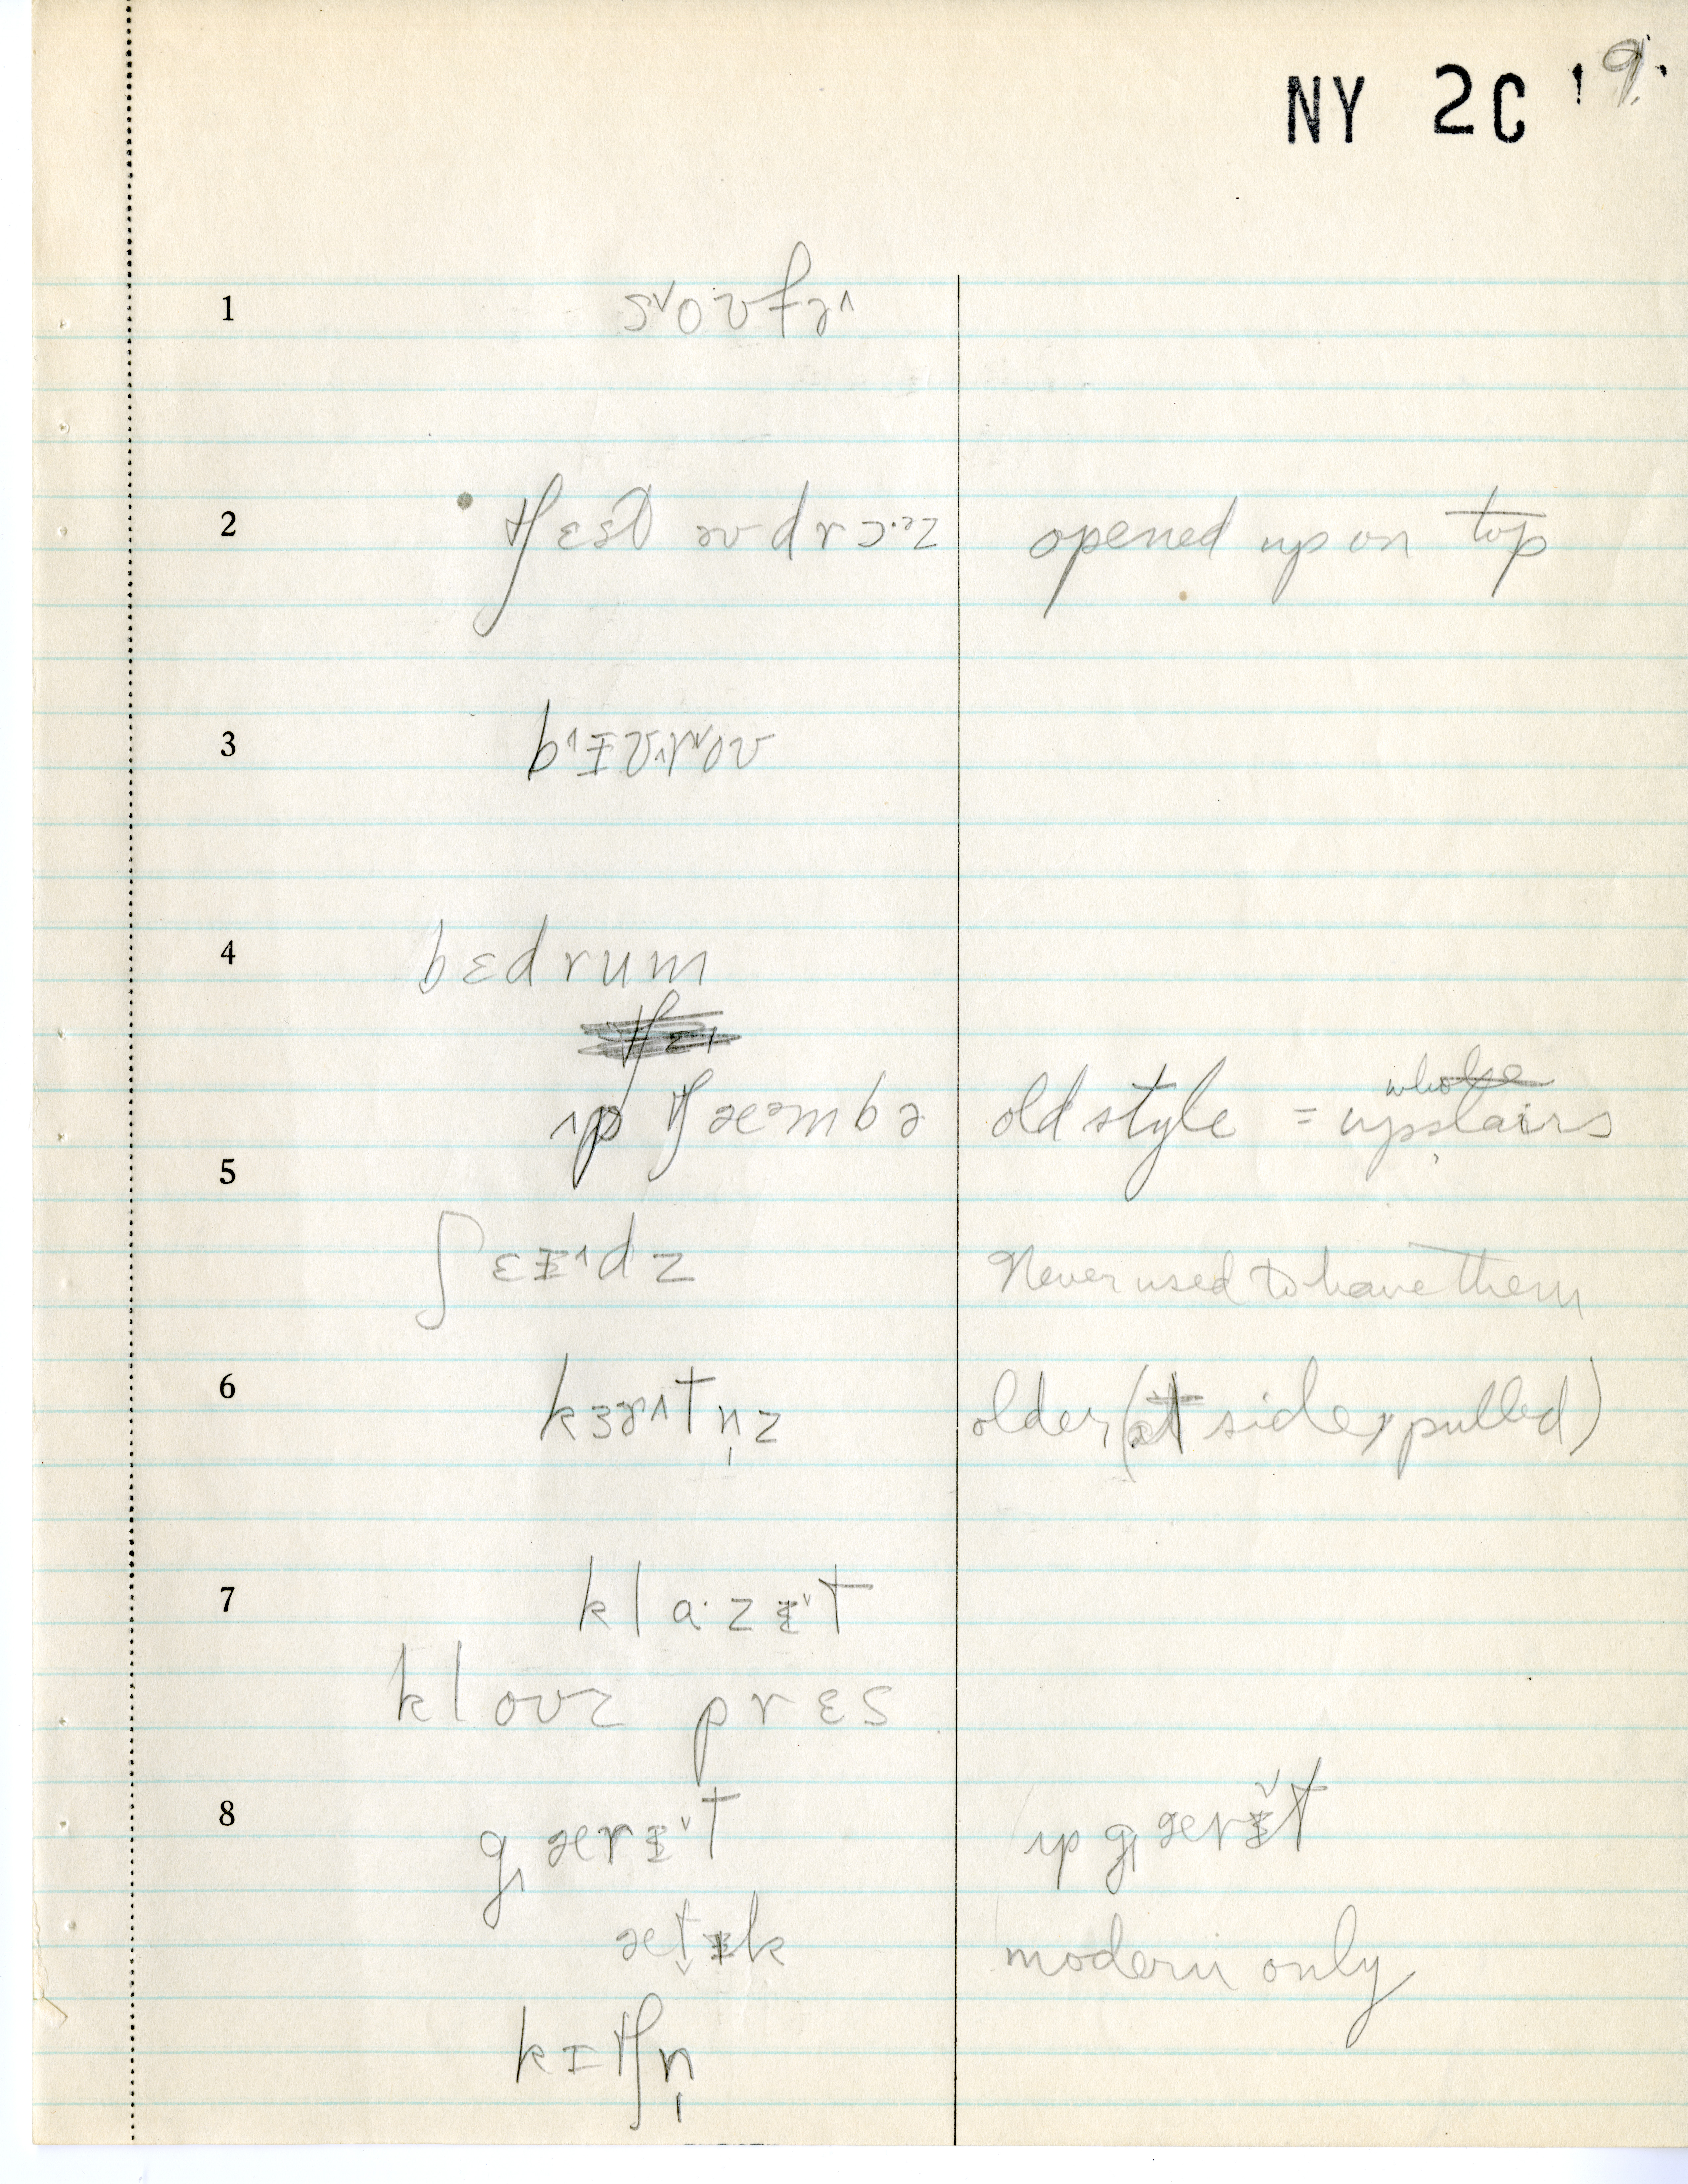 NY 2C '9.
1 s˅oʊfɚ˄
2 tʃɛst əv drɔ·ɚz opened up on top
3 b˄ɨʊ˄r˄oʊ
4 bɛdrum
ʌp tʃæmbɚ old style = upstairs
5
ʃɛɨ˄dz Never used to have them
6 kɜɚ˄tn̩z older (at side, pulled)
7 klɑ·zɨ˅t
kloʊz prɛs
8 gærɨ˅t ʌp gærɨ˅t
ætɨk modern only
kɪtʃn̩